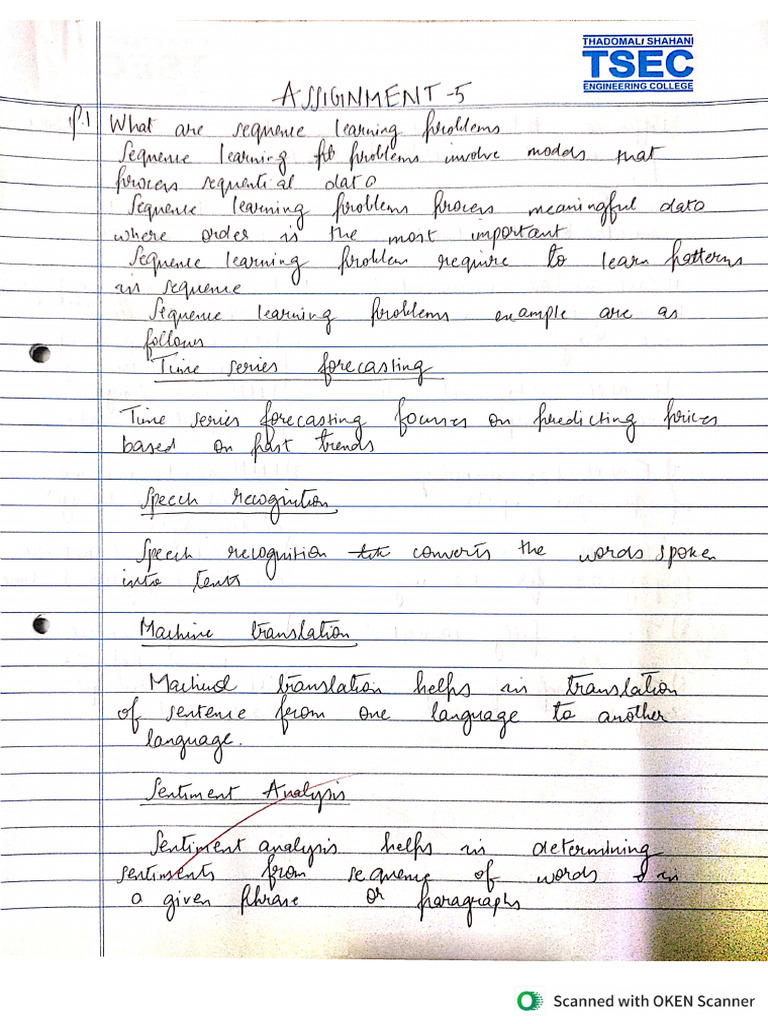 THADOMALI SHAHANI
TSEC
ENGINEERING COLLEGE
ASSIGNMENT-5
P.1 What are sequence learning problems
Sequence learning problems involve models that
process sequential data
Sequence learning problems process meaningful data
where order is the most important
Sequence learning problem require to learn patterns
in sequence
Sequence learning problems example are as
follows
Time series forecasting
Time series forecasting focuses on predicting prices
based on past trends
Speech recognition
Speech recognition converts the words spoken
into
Machine translation
translation helps in translation
of sentence from one language to another
language.
Sentiment Analysis
Sentiment analysis helps in determining
sentiments from sequence of words in
a given phrase or paragraphs
Scanned with OKEN Scanner